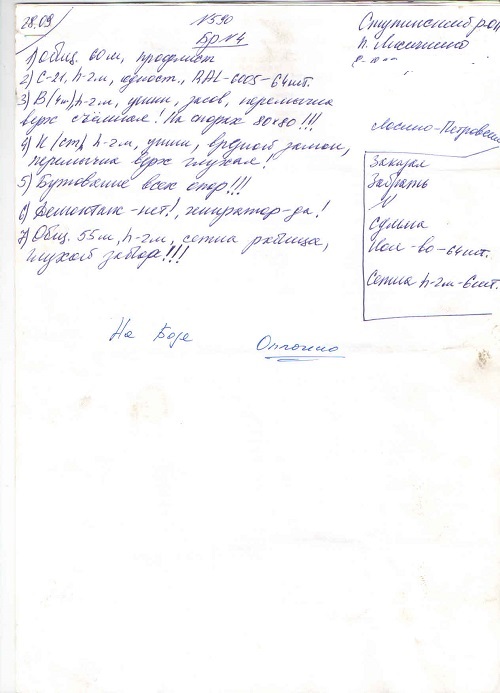 28.09
№590
Бр №4
Ступинский р-он
п.
1) общ. 60м, профлист
2) С-21, h-2м, одност., RAL-6005-64шт.
3) В(4м), h-2м, ушки, засов, перемычка
верх съёмная! На столбах 80х80!!!
4) К (ст), h-2м, ушки, врезной замок,
перемычка верх глухая!
5) Бутование всех опор!!!
6) Демонтаж-нет!, генератор-да!
7) Общ. 55м, h-2м, сетка рабица,
глухой забор!!!
Лосино-Петровский
Заказал
Забрать
Сумма
Кол-во-64шт.
Сетка h-2м-6шт.
На Базе
Оплачено